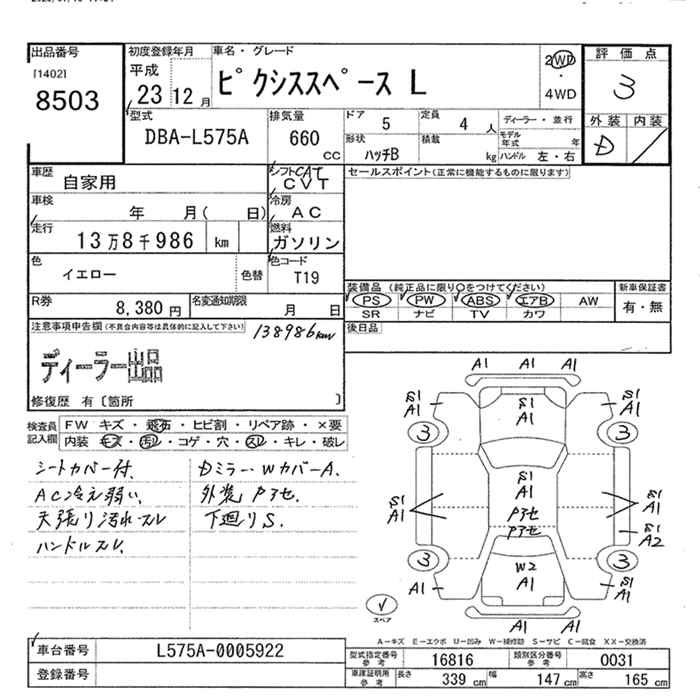 出品番号
[1402]
8503
初度登録年月
平成
23 12 月
車名・グレード
ピクシススペース L
2WD
・
4WD
評価点
3
外装 内装
D
型式
DBA-L575A
排気量
660
cc
ドア 5
定員 4 人
形状 ハッチB
積載 kg
ディーラー・並行
モデル年式 年
ハンドル 左・右
車歴 自家用
シフト CAT
CVT
セールスポイント(正常に機能するものに限ります)
車検 年 月( 日)
冷房 AC
走行 13万8千986 km
燃料 ガソリン
色 イエロー 色替
色コード T19
装備品(純正品に限り○をつけてください)
PS PW ABS エアB AW
SR ナビ TV カワ
新車保証書
有・無
R券 8,380 円
名変通知期限 月 日
後日品
注意事項申告欄(不具合内容等は具体的に記入して下さい)
138986km
ディーラー出品
修復歴 有〔箇所 〕
検査員記入欄
FW キズ・飛石・ヒビ割・リペア跡・×要
内装 キズ・汚レ・コゲ・穴・スレ・キレ・破レ
シートカバー付.
AC冷え弱い.
天張り汚れスレ
ハンドルスレ.
Dミラー・WカバーA.
外装 P了セ.
下廻りS.
A1 A1 A1
S1
A1
S1
A1
S1
A1
3
3
S1
A1
P了セ
P了セ
S1
A1
S1
A1
S1
A2
3
3
W2
A1
A1
S1
A1
スペア
A1 A1 A1
A－キズ E－エクボ U－凹み W－補修跡 S－サビ C－腐食 XX－交換済
車台番号 L575A-0005922
登録番号
型式指定番号 参考 16816
類別区分番号 参考 0031
車庫証明用 参考
長さ 339 cm
幅 147 cm
高さ 165 cm